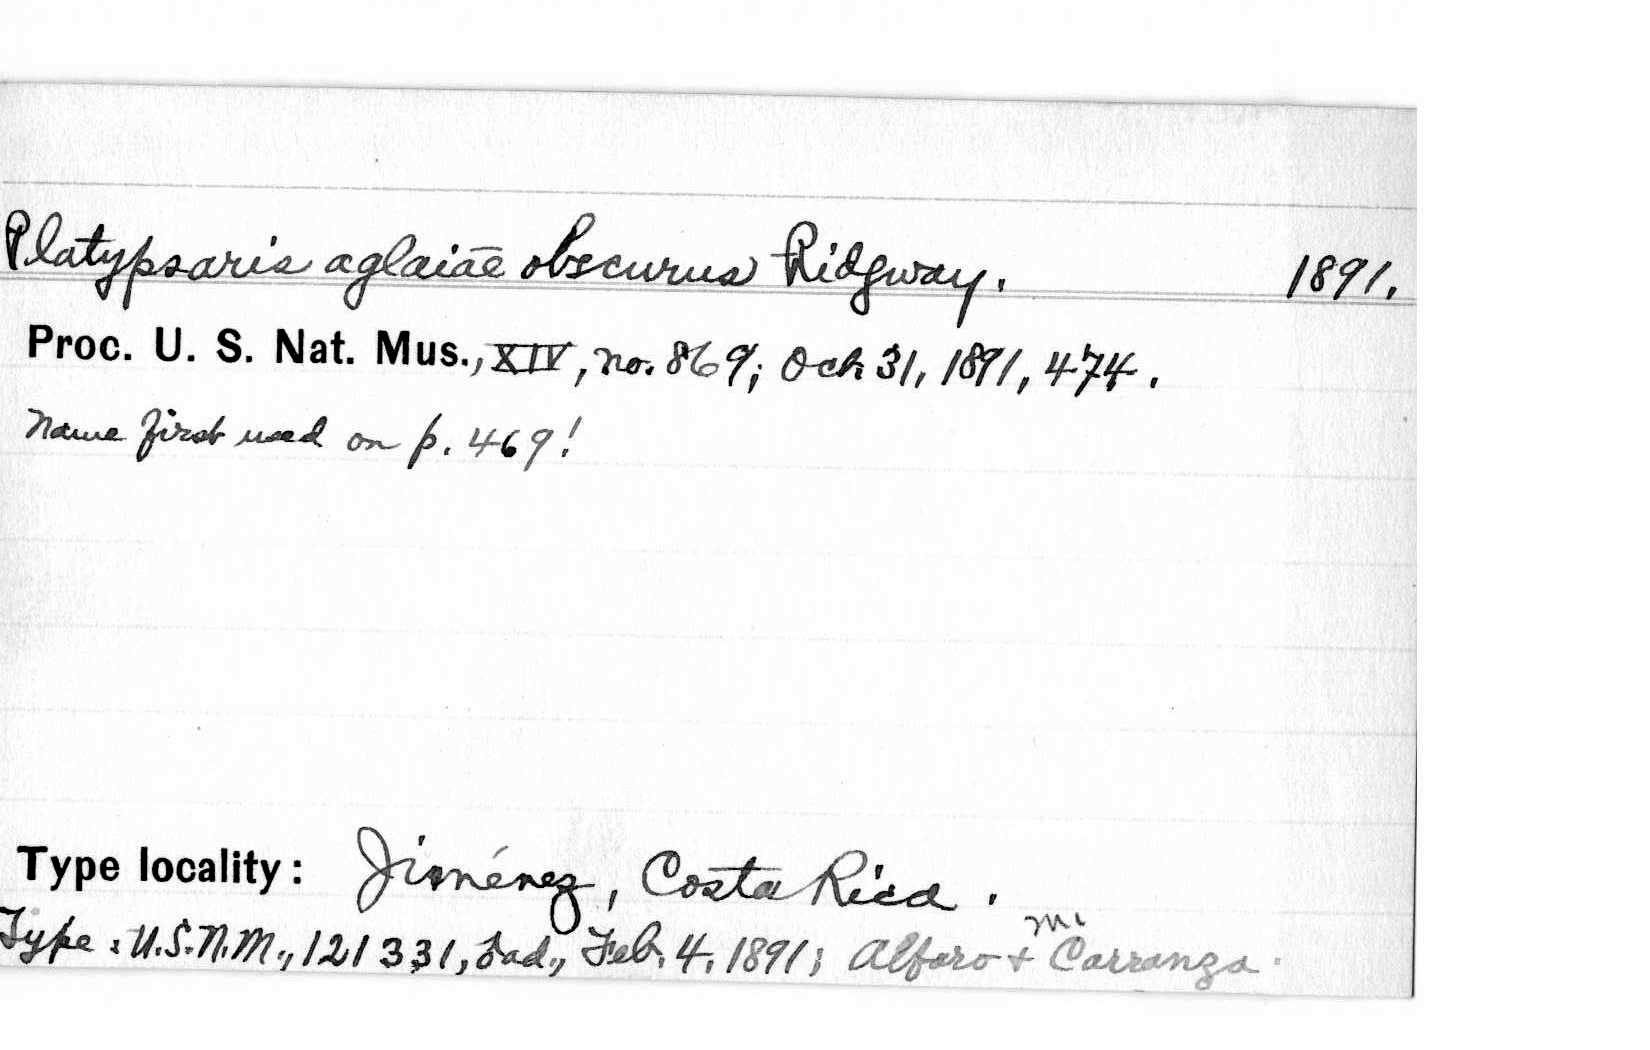 Platypsaris aglaiae obscurus Ridgway. 1891.
Proc. U. S. Nat. Mus., XIV, no. 869; Oct. 31, 1891, 474.
Name first used on p. 469!
Type locality: Jiménez, Costa Rica.
Type: U.S.N.M., 121331, ad., Feb. 4, 1891; Alfaro + M. Carranza.